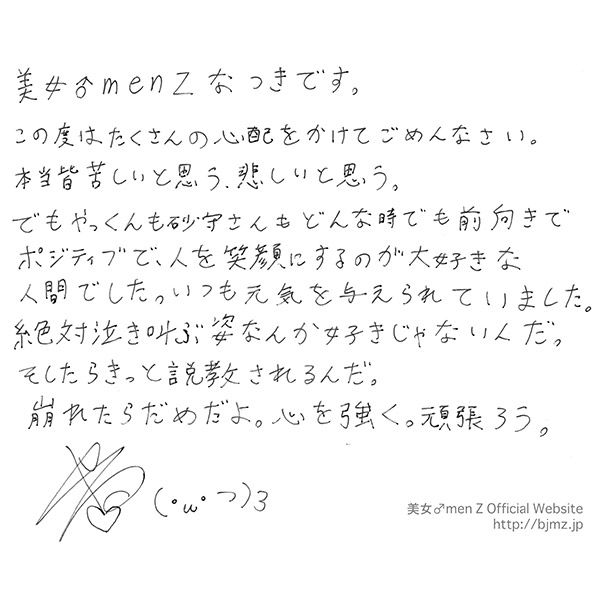 美女♂menZなつきです。
この度はたくさんの心配をかけてごめんなさい。
本当皆苦しいと思う、悲しいと思う。
でもやっくんも砂守さんもどんな時でも前向きで
ポジティブで、人を笑顔にするのが大好きな
人間でした。いつも元気を与えられていました。
絶対泣き叫ぶ姿なんか好きじゃない人だ。
そしたらきっと説教されるんだ。
崩れたらだめだよ。心を強く。頑張ろう。
(・ω・つ)3
美女♂men Z Official Website
http://bjmz.jp